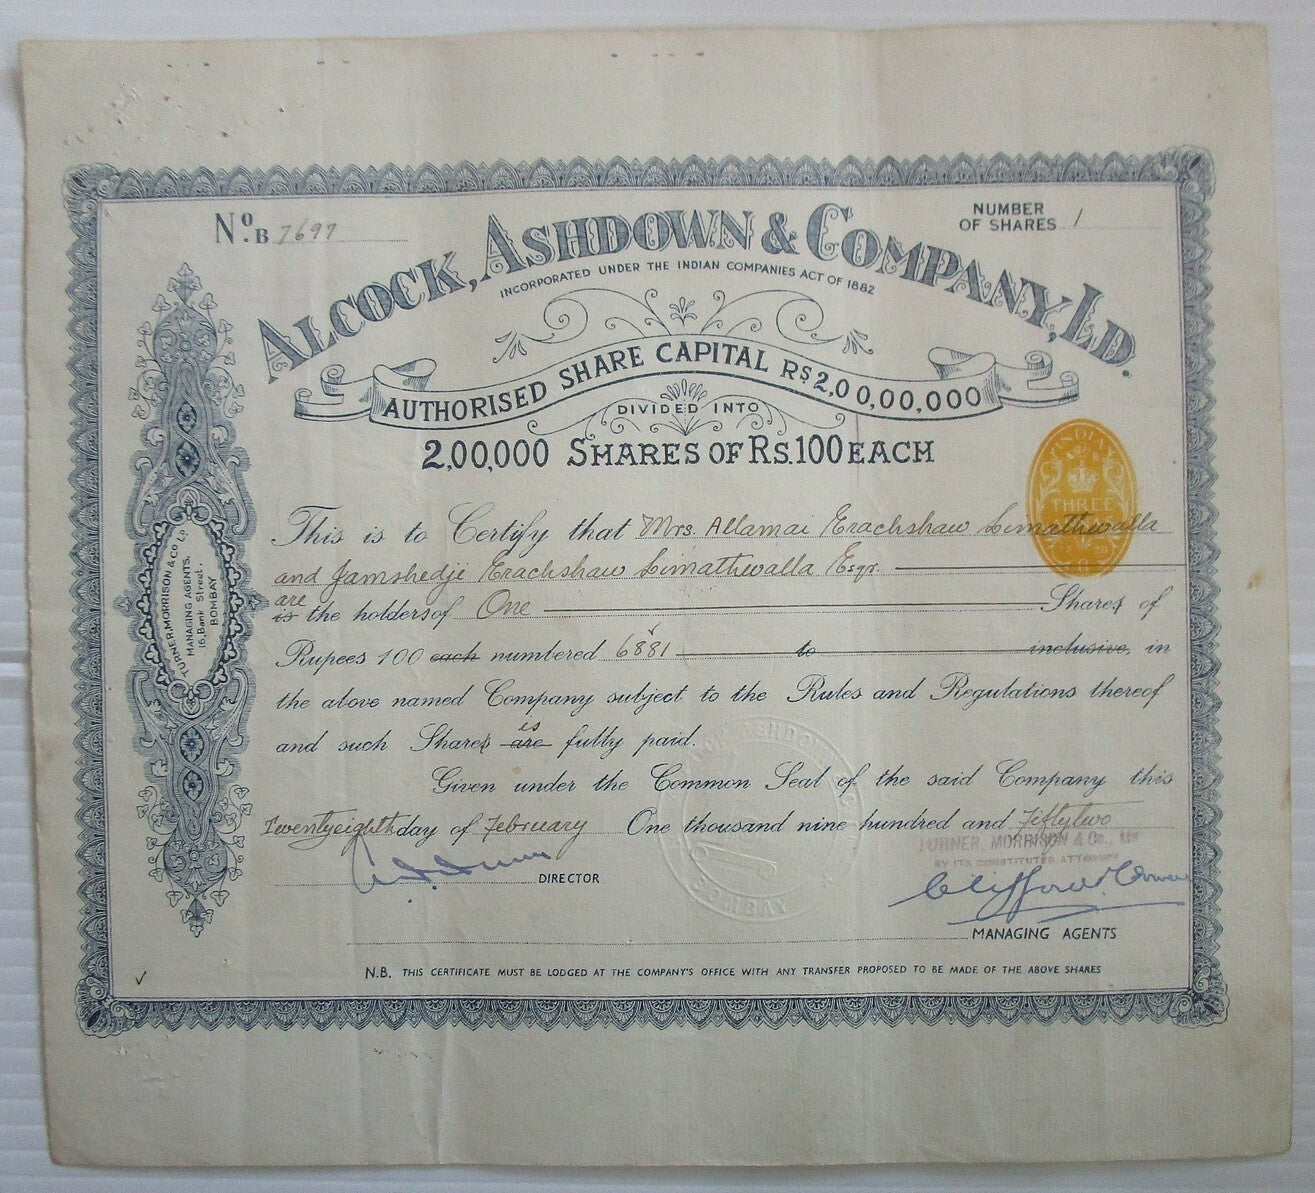 No. B 7697
NUMBER OF SHARES 1
ALCOCK, ASHDOWN & COMPANY, LD.
INCORPORATED UNDER THE INDIAN COMPANIES ACT OF 1882
AUTHORISED SHARE CAPITAL RS 2,00,00,000
DIVIDED INTO
2,00,000 SHARES OF RS. 100 EACH
INDIA
THREE
This is to Certify that Mrs. Allamai Erachshaw Limathwalla
and Jamshedji Erachshaw Limathwalla Esqr.
are
is the holders of One Shares of
Rupees 100 each numbered 6881 to inclusive, in
the above named Company subject to the Rules and Regulations thereof
is
and such Shares are fully paid.
Given under the Common Seal of the said Company this
Twentyeighth day of February One thousand nine hundred and Fiftytwo
TURNER, MORRISON & Co., Ld
BY ITS CONSTITUTED ATTORNEY
DIRECTOR
MANAGING AGENTS
N.B. THIS CERTIFICATE MUST BE LODGED AT THE COMPANY'S OFFICE WITH ANY TRANSFER PROPOSED TO BE MADE OF THE ABOVE SHARES
TURNER, MORRISON & CO LD.
MANAGING AGENTS,
16, Bank Street,
BOMBAY
ASHDOWN
BOMBAY